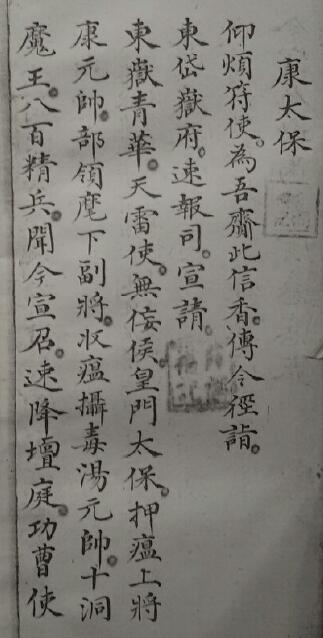 康太保
仰煩符使。為吾齎此信香。傳令徑詣。
東岱嶽府。速報司。宣請。
東嶽青華。天雷使。無侫侯。皇門太保。押瘟上將
康元帥。部領麾下副將。收瘟攝毒湯元帥。十洞
魔王。八百精兵。聞今宣召。速降壇庭。功曹使